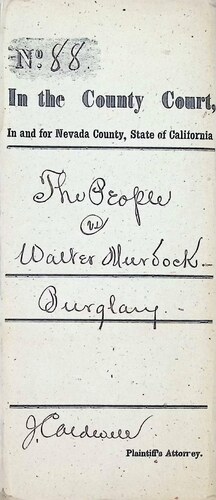 No. 88.
In the County Court,
In and for Nevada County, State of California
The People
vs
Walter Murdock
Burglary
J. Caldwell
Plaintiff's Attorney.